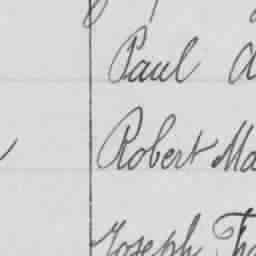 Paul
Robert Ma
Joseph Tho